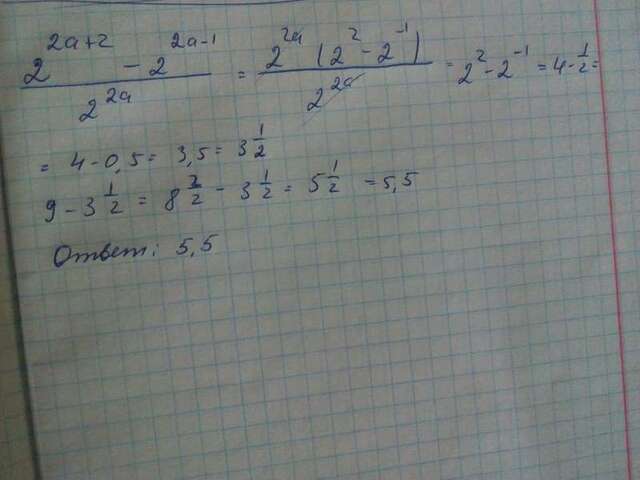 (2^(2a+2) - 2^(2a-1)) / 2^(2a) = 2^(2a) (2^2 - 2^(-1)) / 2^(2a) = 2^2 - 2^(-1) = 4 - 1/2 =
= 4 - 0,5 = 3,5 = 3 1/2
9 - 3 1/2 = 8 2/2 - 3 1/2 = 5 1/2 = 5,5
Ответ: 5,5